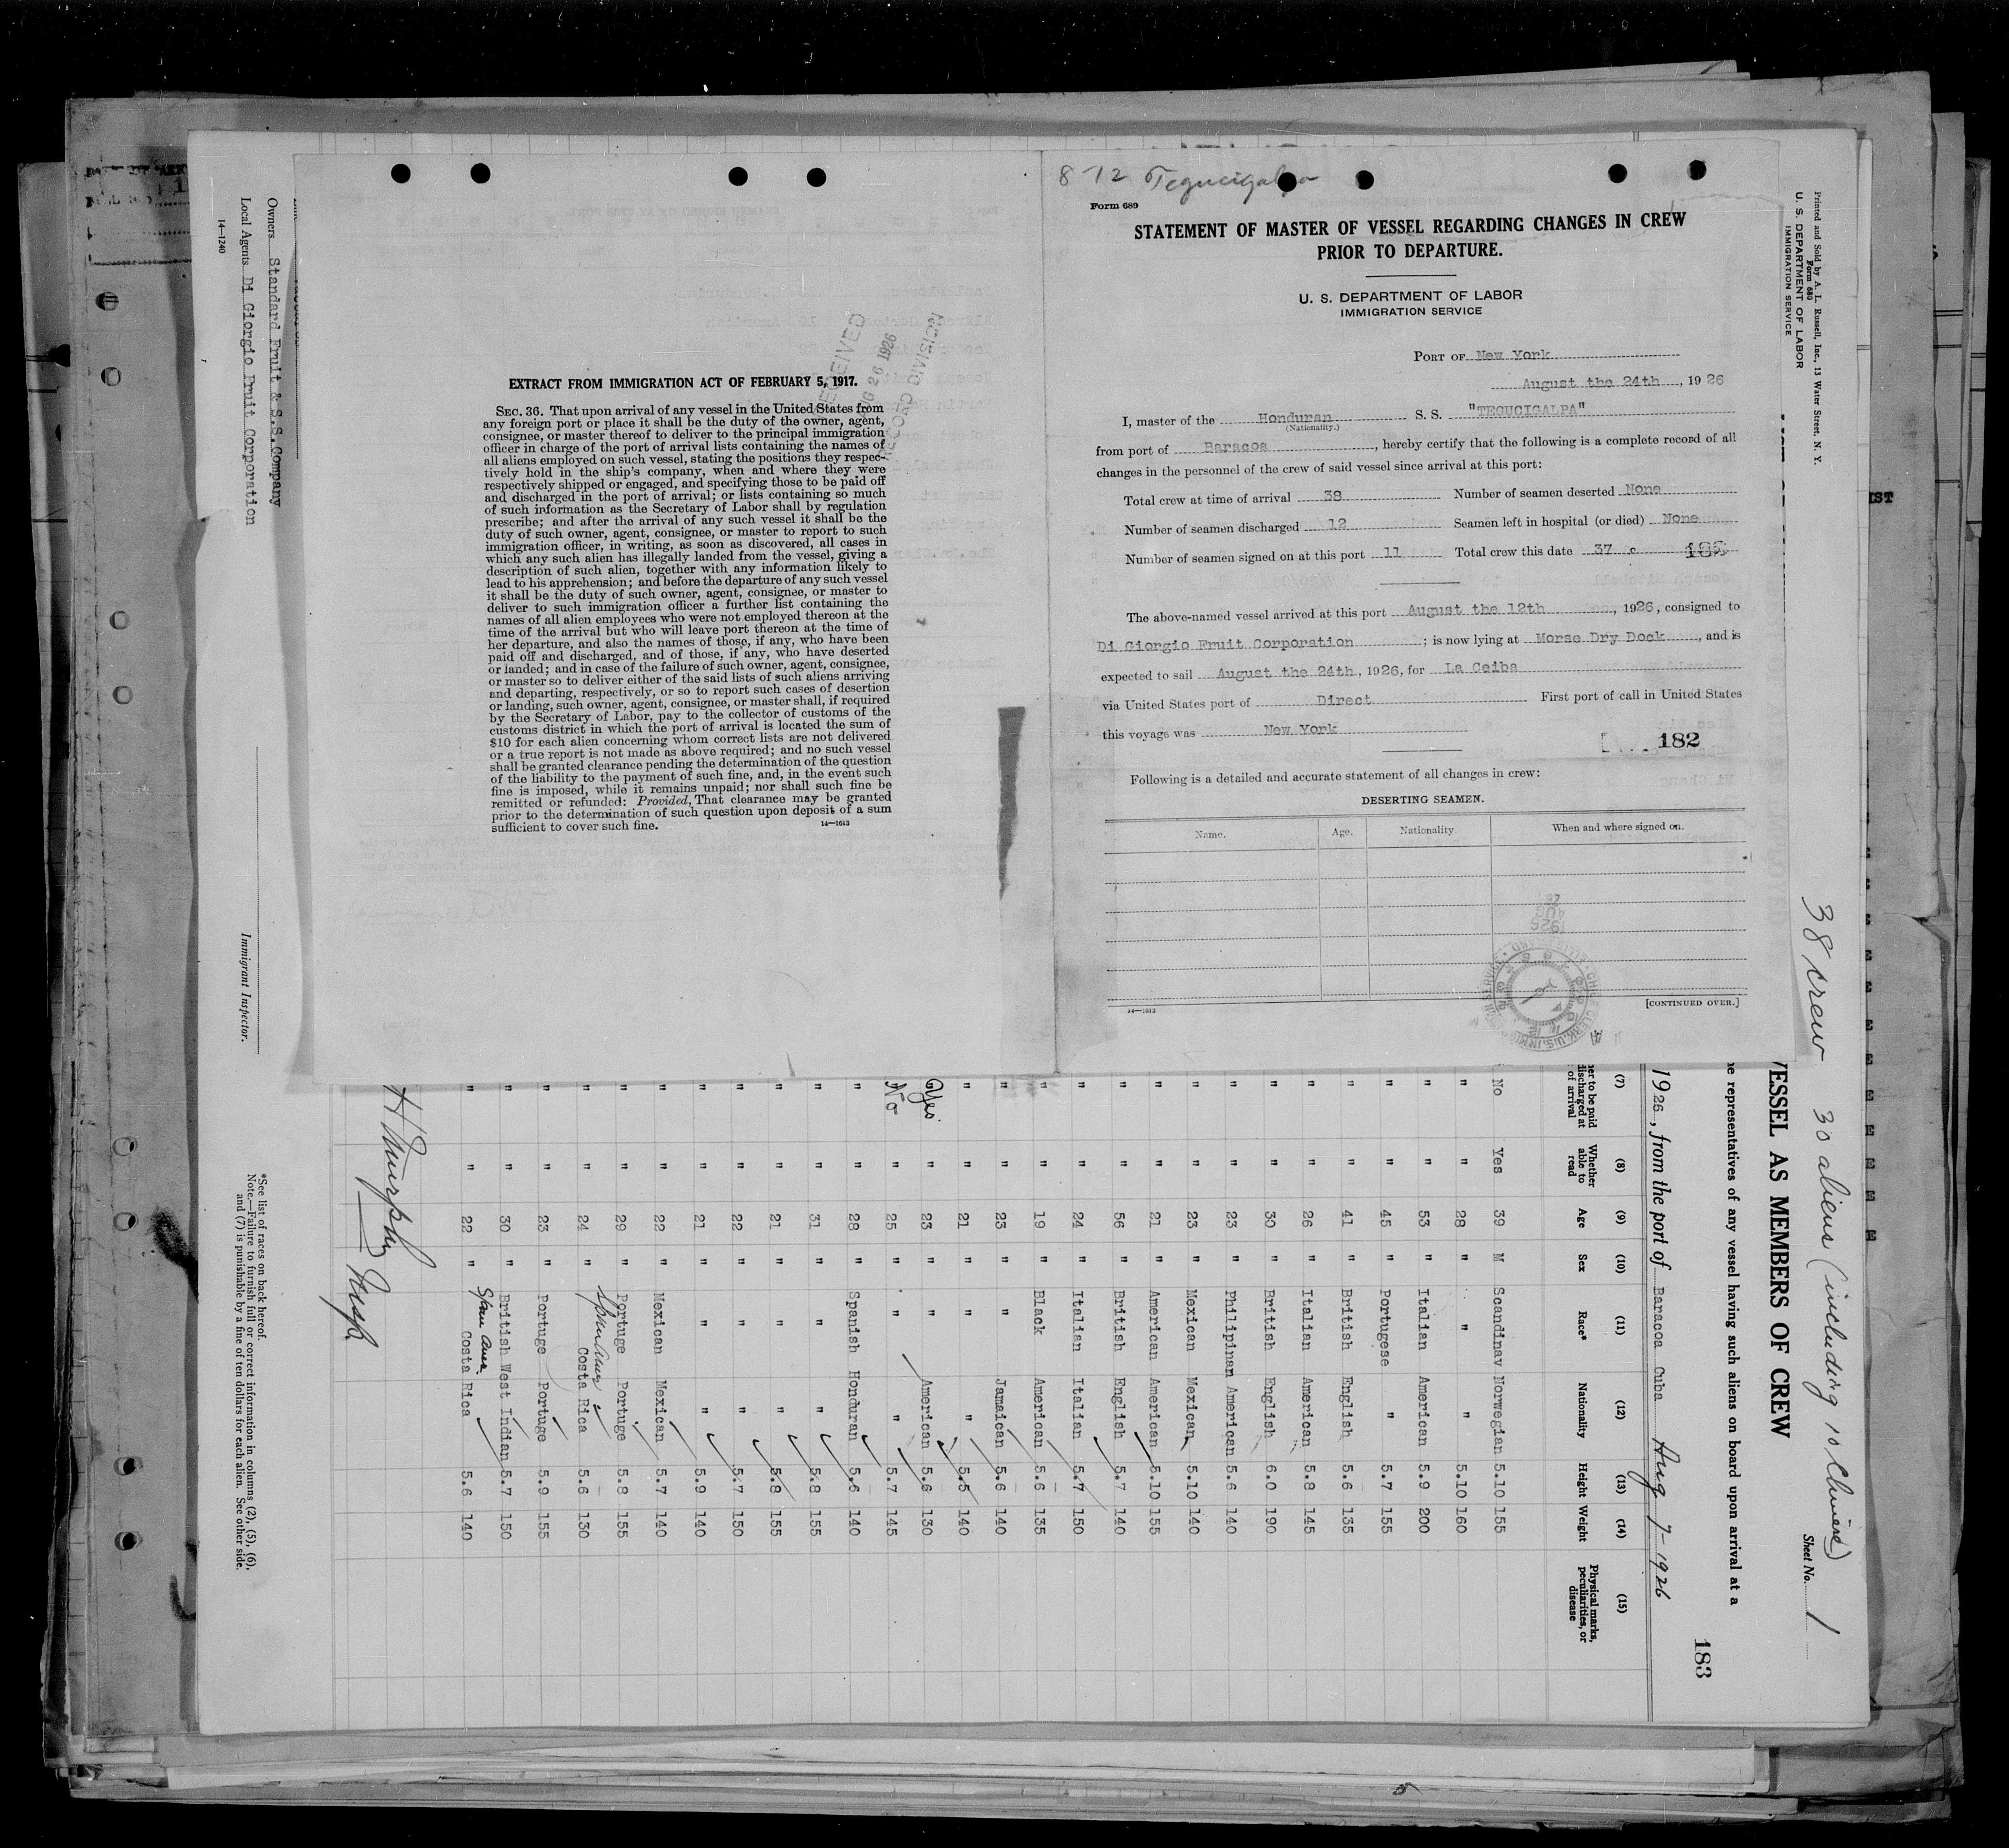 8 12 Tegucigalpa
Form 689
STATEMENT OF MASTER OF VESSEL REGARDING CHANGES IN CREW
PRIOR TO DEPARTURE.
U. S. DEPARTMENT OF LABOR
IMMIGRATION SERVICE
PORT OF New York
August the 24th, 1926
I, master of the Honduran S. S. "TEGUCIGALPA"
(Nationality.)
from port of Baracoa, hereby certify that the following is a complete record of all
changes in the personnel of the crew of said vessel since arrival at this port:
Total crew at time of arrival 38 Number of seamen deserted None
Number of seamen discharged 12 Seamen left in hospital (or died) None
Number of seamen signed on at this port 11 Total crew this date 37
The above-named vessel arrived at this port August the 12th, 1926, consigned to
Di Giorgio Fruit Corporation; is now lying at Morse Dry Dock, and is
expected to sail August the 24th, 1926, for La Ceiba
via United States port of Direct First port of call in United States
this voyage was New York
182
Following is a detailed and accurate statement of all changes in crew:
DESERTING SEAMEN.
Name. Age. Nationality When and where signed on.
[CONTINUED OVER.]
14—1613
EXTRACT FROM IMMIGRATION ACT OF FEBRUARY 5, 1917.
SEC. 36. That upon arrival of any vessel in the United States from
any foreign port or place it shall be the duty of the owner, agent,
consignee, or master thereof to deliver to the principal immigration
officer in charge of the port of arrival lists containing the names of
all aliens employed on such vessel, stating the positions they respec-
tively hold in the ship's company, when and where they were
respectively shipped or engaged, and specifying those to be paid off
and discharged in the port of arrival; or lists containing so much
of such information as the Secretary of Labor shall by regulation
prescribe; and after the arrival of any such vessel it shall be the
duty of such owner, agent, consignee, or master to report to such
immigration officer, in writing, as soon as discovered, all cases in
which any such alien has illegally landed from the vessel, giving a
description of such alien, together with any information likely to
lead to his apprehension; and before the departure of any such vessel
it shall be the duty of such owner, agent, consignee, or master to
deliver to such immigration officer a further list containing the
names of all alien employees who were not employed thereon at the
time of the arrival but who will leave port thereon at the time of
her departure, and also the names of those, if any, who have been
paid off and discharged, and of those, if any, who have deserted
or landed; and in case of the failure of such owner, agent, consignee,
or master so to deliver either of the said lists of such aliens arriving
and departing, respectively, or so to report such cases of desertion
or landing, such owner, agent, consignee, or master shall, if required
by the Secretary of Labor, pay to the collector of customs of the
customs district in which the port of arrival is located the sum of
$10 for each alien concerning whom correct lists are not delivered
or a true report is not made as above required; and no such vessel
shall be granted clearance pending the determination of the question
of the liability to the payment of such fine, and, in the event such
fine is imposed, while it remains unpaid; nor shall such fine be
remitted or refunded: Provided, That clearance may be granted
prior to the determination of such question upon deposit of a sum
sufficient to cover such fine.
14—1613
RECEIVED
AUG 26 1926
RECORD DIVISION
Printed and Sold by A. L. Russell, Inc., 13 Water Street, N. Y.
Form 680
U. S. DEPARTMENT OF LABOR
IMMIGRATION SERVICE
38 crew 30 aliens (including 10 Chinese)
Sheet No. 1
VESSEL AS MEMBERS OF CREW
e representatives of any vessel having such aliens on board upon arrival at a
183
1926, from the port of Baracoa Cuba Aug 7-1926
(7) (8) (9) (10) (11) (12) (13) (14) (15)
er to be paid discharged at of arrival Whether able to read Age Sex Race* Nationality Height Weight Physical marks, peculiarities, or disease
No Yes 39 M Scandinav Norwegian 5.10 155
" " 28 " " " 5.10 160
" " 53 " Italian American 5.9 200
" " 45 " Portugese " 5.7 155
" " 41 " British English 5.6 135
" " 26 " Italian American 5.8 145
" " 30 " British English 6.0 190
" " 23 " Philipinan American 5.6 140
" " 23 " Mexican Mexican 5.10 140
" " 21 " American American 5.10 155
" " 56 " British English 5.7 140
" " 24 " Italian Italian 5.7 150
" " 19 " Black American 5.6 135
" " 23 " " Jamaican 5.6 140
" " 21 " " " 5.5 140
Yes " 23 " " American 5.6 130
No " 25 " " " 5.7 145
" " 28 " Spanish Honduran 5.6 140
" " 31 " " " 5.8 155
" " 21 " " " 5.8 155
" " 22 " " " 5.7 150
" " 21 " " " 5.9 140
" " 22 " Mexican Mexican 5.7 140
" " 29 " Portuge Portuge 5.8 155
" " 24 " Span Amer Costa Rica 5.6 130
" " 23 " Portuge Portuge 5.9 155
" " 30 " British West Indian 5.7 150
" " 22 " Span Amer. Costa Rica 5.6 140
H Murphy Insp
Immigrant Inspector.
*See list of races on back hereof.
Note.—Failure to furnish full or correct information in columns (2), (5), (6),
and (7) is punishable by a fine of ten dollars for each alien. See other side.
Owners Standard Fruit & S.S. Company
Local Agents Di Giorgio Fruit Corporation
14—1240